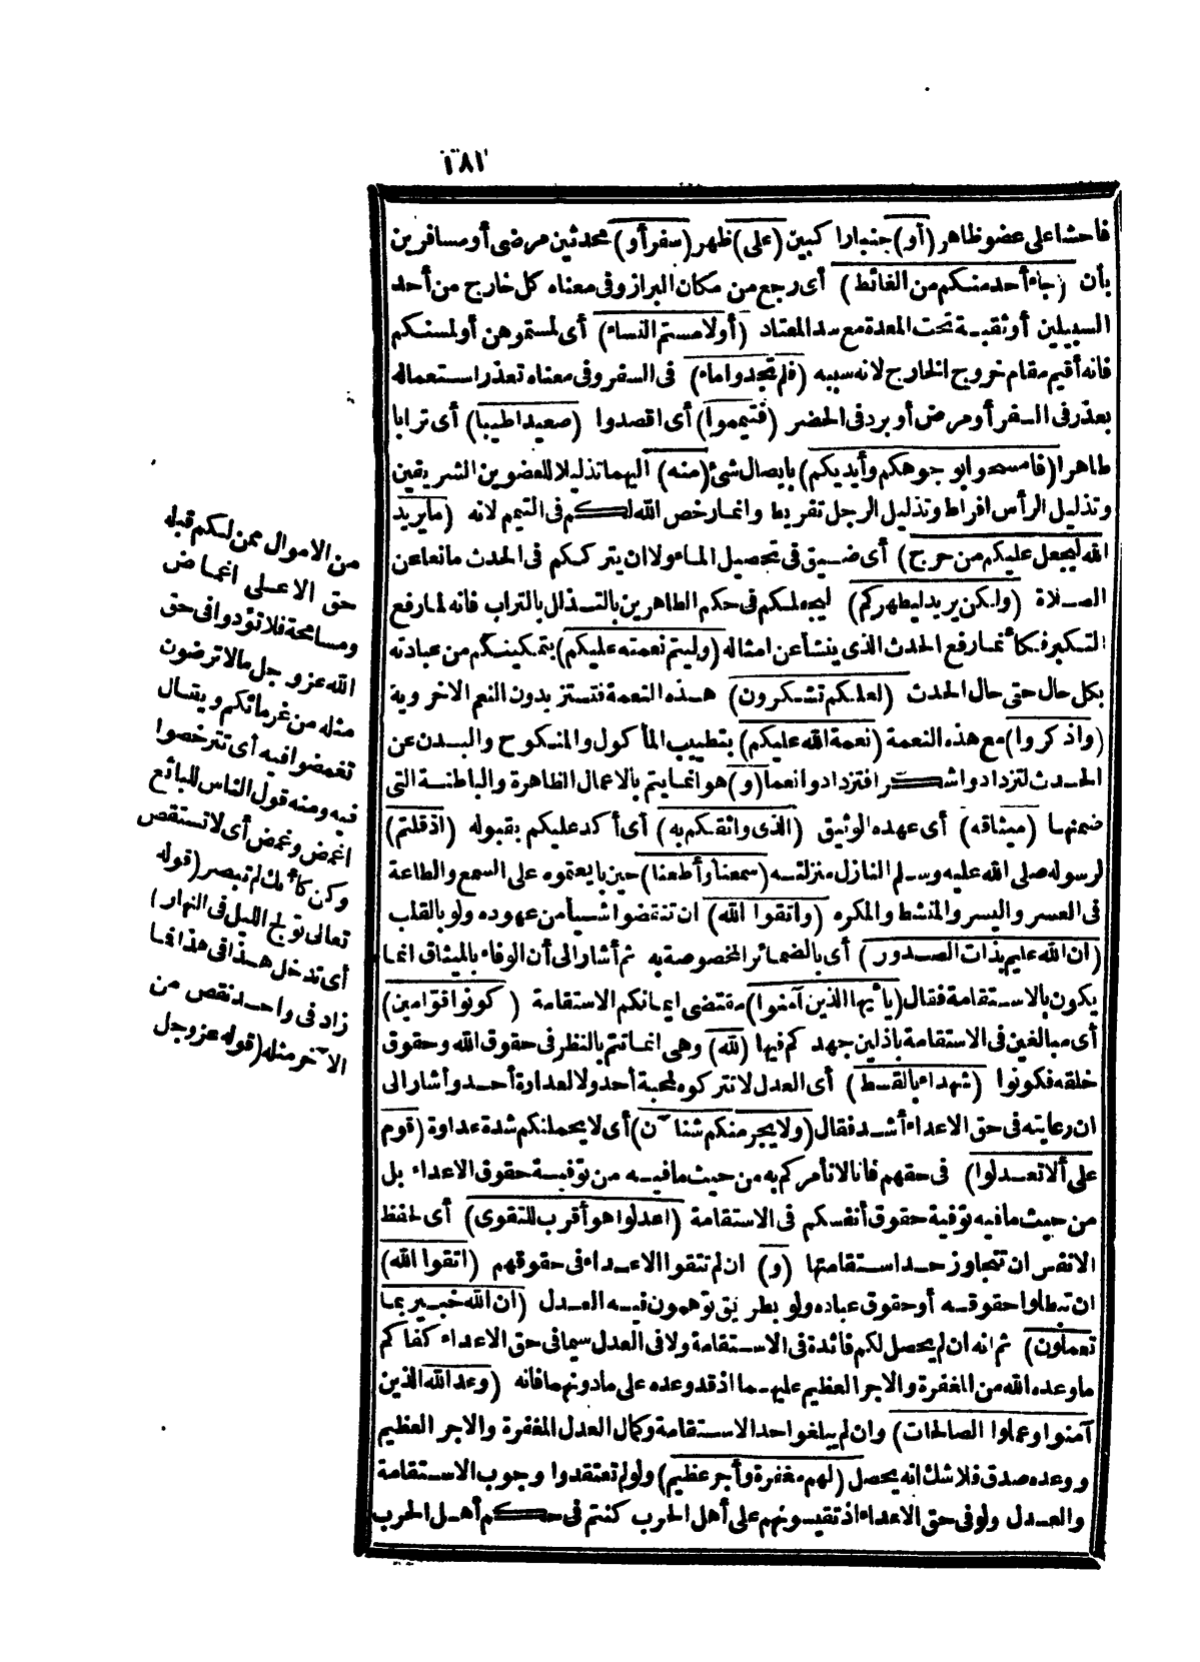 ١٨١
فاحشا على عضو ظاهر (أو) جنبا را كبين (على) ظهر (سفر أو) محدثين مرضى أو مسافرين
بأن (جاء أحد منكم من الغائط) أى رجع من مكان البراز وفى معناه كل خارج من أحد
السبيلين أو ثقبة تحت المعدة مع سد المعتاد (أو لامستم النساء) أى لمستموهن أو لمسنكم
فانه أقيم مقام خروج الخارج لانه سببه (فلم تجدوا ماء) فى السفر وفى معناه تعذر استعماله
بعذر فى السفر أو مرض أو برد فى الحضر (فتيمموا) أى اقصدوا (صعيدا طيبا) أى ترابا
طاهرا (فامسحوا بوجوهكم وأيديكم) بايصال شئ (منه) اليهما تذليلا للعضوين الشريفين
وتذليل الرأس افراط وتذليل الرجل تفريط وانما رخص الله لكم فى التيمم لانه (ما يريد
الله ليجعل عليكم من حرج) أى ضيق فى تحصيل الماء ولا ان يترككم فى الحدث مانعا عن
الصلاة (ولكن يريد ليطهركم) ليجعلكم فى حكم الطاهرين بالتذلل بالتراب فانه لما رفع
التكبر فكأنما رفع الحدث الذى ينشأ عن امثاله (وليتم نعمته عليكم) بتمكينكم من عبادته
بكل حال حتى حال الحدث (لعلكم تشكرون) هذه النعمة فتستزيدون النعم الاخروية
(واذكروا) مع هذه النعمة (نعمة الله عليكم) بتطييب المأكول والمنكوح والبدن عن
الحدث لتزدادوا شكرا فتزدادوا نعما (و) هو انما يتم بالاعمال الظاهرة والباطنة التى
ضمنها (ميثاقه) أى عهده الوثيق (الذى واثقكم به) أى أكد عليكم بقبوله (اذ قلتم)
لرسوله صلى الله عليه وسلم النازل منزلته (سمعنا وأطعنا) حين بايعتموه على السمع والطاعة
فى العسر واليسر والمنشط والمكره (واتقوا الله) ان تنقضوا شيأ من عهوده ولو بالقلب
(ان الله عليم بذات الصدور) أى بالضمائر المخصوصة به ثم أشار الى أن الوفاء بالميثاق انما
يكون بالاستقامة فقال (يا أيها الذين آمنوا) مقتضى ايمانكم الاستقامة (كونوا قوامين)
أى مبالغين فى الاستقامة باذلين جهدكم فيها (لله) وهى انما تتم بالنظر فى حقوق الله وحقوق
خلقه فكونوا (شهداء بالقسط) أى العدل لا تتركوه لمحبة أحد ولا لعداوة أحد وأشار الى
ان رعايته فى حق الاعداء أشد فقال (ولا يجرمنكم شنآن) أى لا يحملنكم شدة عداوة (قوم
على ألا تعدلوا) فى حقهم فانا لا نأمركم به من حيث ما فيه من توفية حقوق الاعداء بل
من حيث ما فيه توفية حقوق أنفسكم فى الاستقامة (اعدلوا هو أقرب للتقوى) أى لحفظ
الانفس ان تتجاوز حد استقامتها (و) ان لم تتقوا الاعداء فى حقوقهم (اتقوا الله)
ان تبطلوا حقوقه أو حقوق عباده ولو بطريق توهمون فيه العدل (ان الله خبير بما
تعملون) ثم انه ان لم يحصل لكم فائدة فى الاستقامة ولا فى العدل سيما فى حق الاعداء كفاكم
ما وعده الله من المغفرة والاجر العظيم عليهما اذ قد وعده على ما دونهما فانه (وعد الله الذين
آمنوا وعملوا الصالحات) وان لم يبلغوا حد الاستقامة وكمال العدل المغفرة والاجر العظيم
ووعده صدق فلا شك انه يحصل (لهم مغفرة وأجر عظيم) ولو لم تعتقدوا وجوب الاستقامة
والعدل ولو فى حق الاعداء اذ تقيسونهم على أهل الحرب كنتم فى حكم أهل الحرب
من الاموال ممن لكم قبله
حق الا على اغماض
ومسامحة فلا تؤدوا فى حق
الله عز وجل ما لا ترضون
مثله من غرمائكم ويقال
تغمضوا فيه أى تترخصوا
فيه ومنه قول الناس للبائع
اغمض وغمض أى لا تستقص
وكن كأنك لم تبصر (قوله
تعالى تولج الليل فى النهار)
أى تدخل هذا فى هذا فما
زاد فى واحد نقص من
الآخر مثله (قوله عز وجل